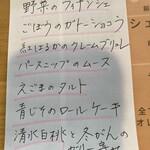 野菜のフィナンシェ
ごぼうのガトーショコラ
紅はるかのクレームブリュレ
パースニップのムース
えごまのタルト
青じそのロールケーキ
清水白桃と冬がんの